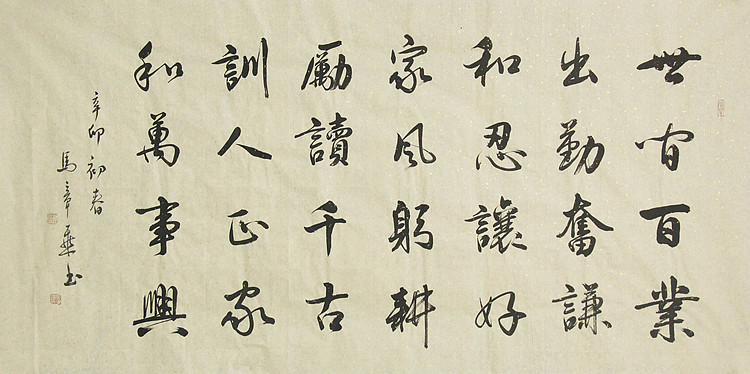 世間百業
出勤奮謙
和忍讓好
家風躬耕
勵讀千古
訓人正家
和萬事興
辛卯初春
馬章書